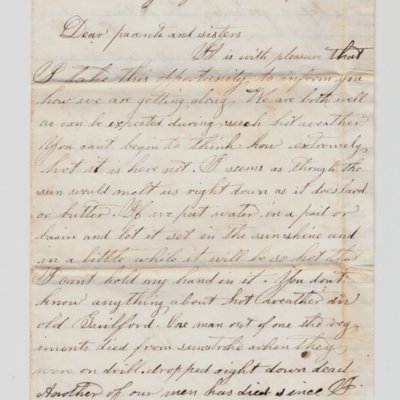 Dear parents and sisters
It is with pleasure that
I take this opportunity to inform you
how we are getting along. We are both well
as can be expected during such hot weather
You cant begin to think how extremely
hot it is here not. I seems as though the
sun would melt us right down as it does lard
or butter. If we put water in a pail or
basin and let it set in the sunshine and
in a little while it will be so hot that
I cant hold my hand in it. You dont
know anything about hot weather in
old Guilford. One man out of one the reg
iments died from sunstroke when they
were on drill, dropped right down dead
Another of our men has died since